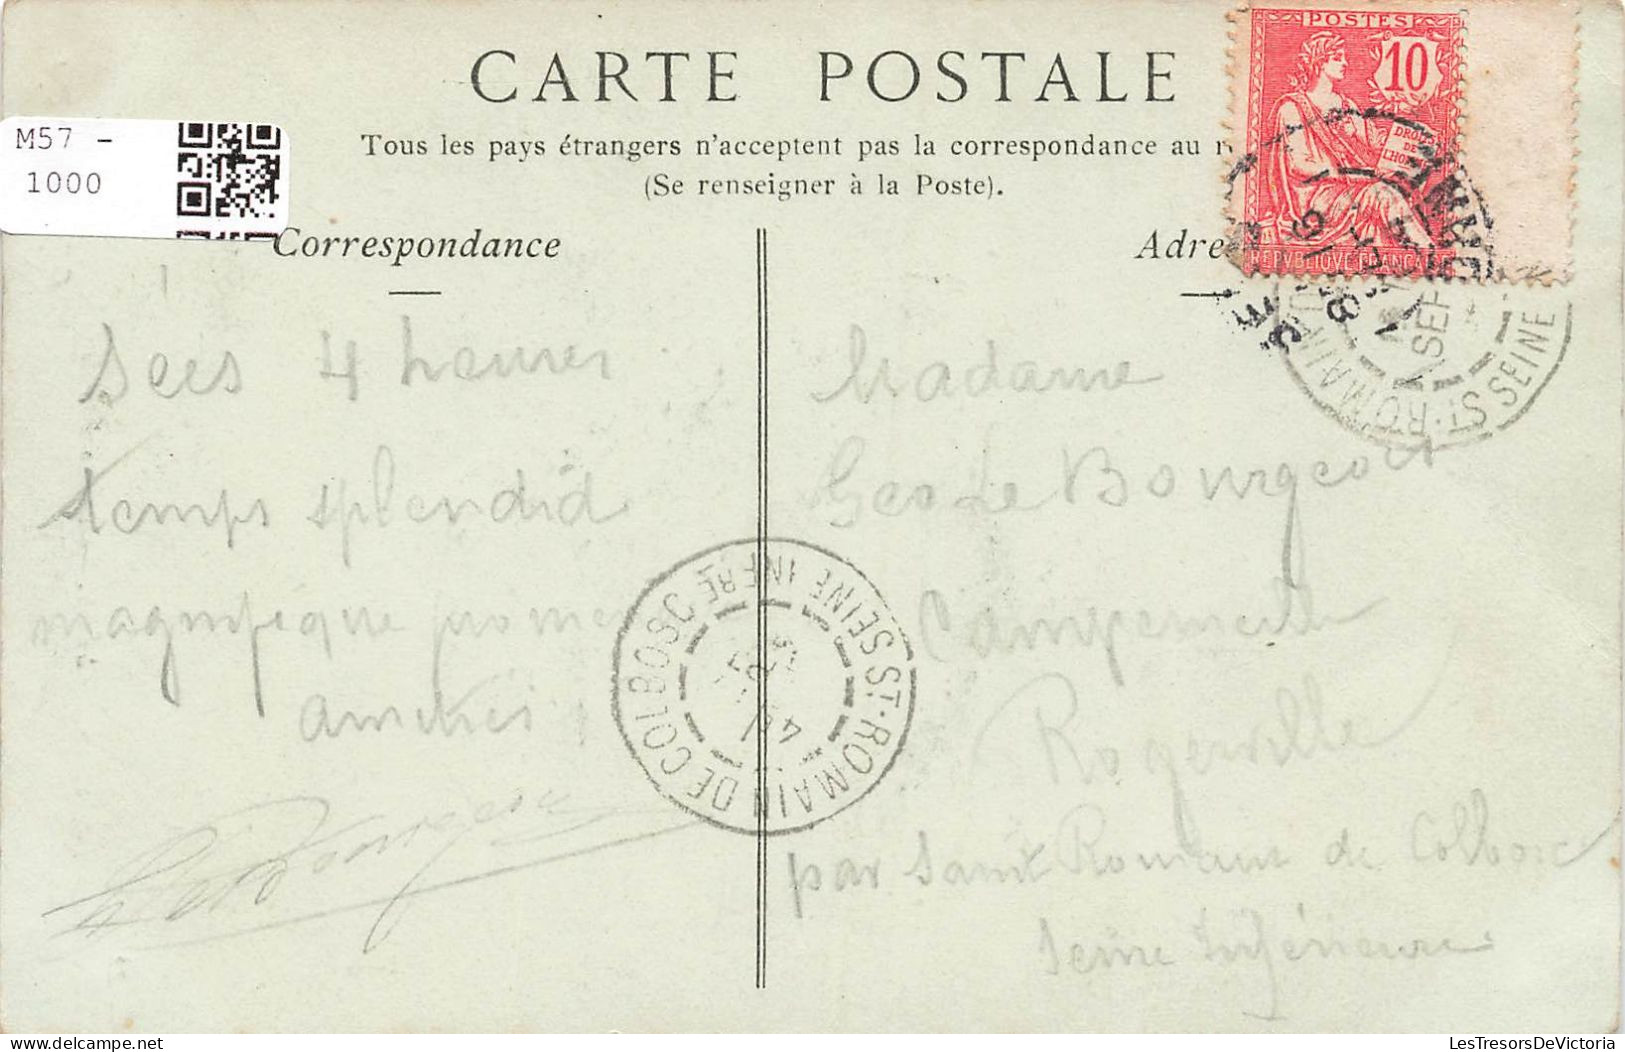 CARTE POSTALE
Tous les pays étrangers n'acceptent pas la correspondance au
(Se renseigner à la Poste).
M57 -
1000
Correspondance
Adre
POSTES
10
DROITS
DE
L'HOMME
REPVBLIQVE FRANÇAISE
Sées 4 heures
temps splendid
magnifique prome
Madame
Bourgeois
Rogerville
par Saint Romain de Colbosc
Seine Inférieure
ST-ROMAIN DE COLBOSC
SEINE INFRE
ST-ROMAIN
SEINE
LesTresorsDeVictoria
www.delcampe.net